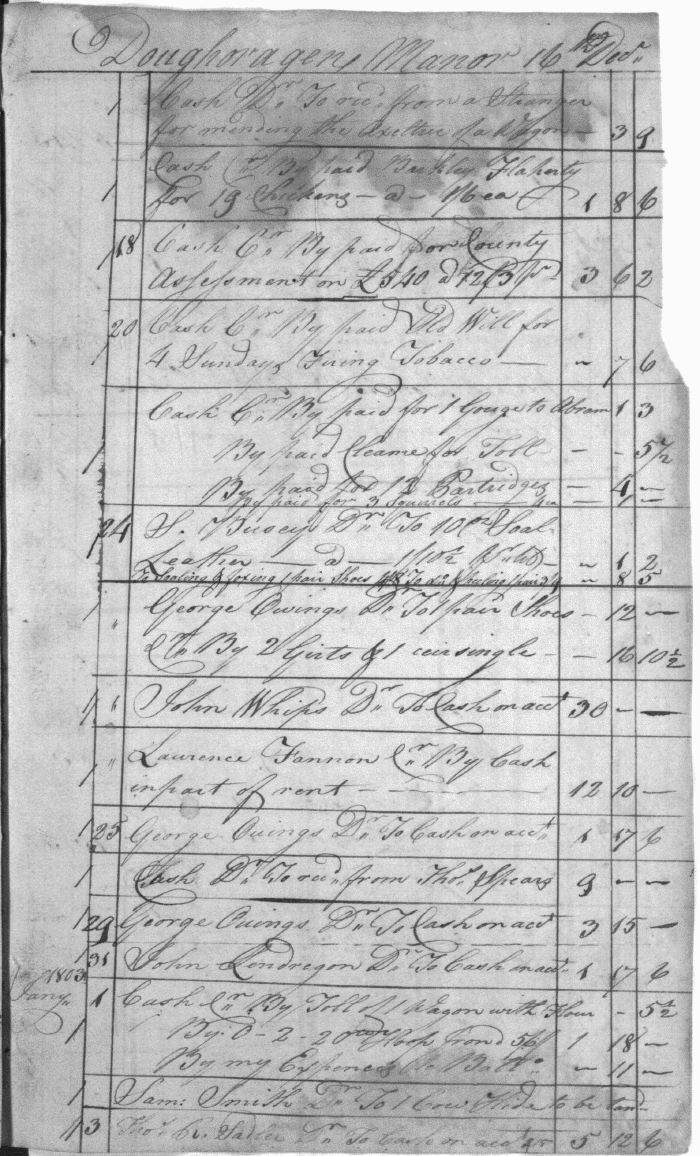 Doughoragen Manor 16th Decr
1 Cash Dr To recd from a Stranger
for mending the Axeltree of a Wagon — 3 9
1 Cash Cr By paid Flaherty
for 19 Chickens — a — 1/6 ea 1 8 6
1 18 Cash Cr By paid for County
Assessment on £540 a 12/3 pr 3 6 2
1 20 Cash Cr By paid Old Will for
4 Sundays Firing Tobacco — " 7 6
Cash Cr By paid for 1 Gouge to Abram 1 3
1 By paid Cleame for Toll — - - 5½
By paid for Partridges — 4 —
By paid for 3 Squirrels —
1 24 S. Busey Dr To 10 oz Soal
Leather — a — 1/10½ pr lb — " 1 2
To Sealing & foxing 1 pair Shoes " 8 5
1 " George Owings Dr To 1 pair Shoes - 12 —
Cr By 2 Girts & 1 ceirsingle - - 16 10½
1 " John Whips Dr To Cash on acct 30 - —
1 " Laurence Fannon Cr By Cash
in part of rent — 12 10 —
1 25 George Owings Dr To Cash on acct 1 17 6
1 Cash Dr To recd from Thos Spears 9 — —
1 29 George Owings Dr To Cash on acct 3 15 —
1 31 John Londregon Dr To Cash on acct 1 17 6
1803
Jany 1 Cash Cr By Toll of 1 Wagon with Flour - 5½
1 By 0 - 2 - 20 Hoop Iron a 56/ 1 18 —
By my Expences to Balto " 11 —
1 Sam: Smith Dr To 1 Cow Hide to be tand
1 3 Thos Sadler Dr To Cash on acct 5 12 6